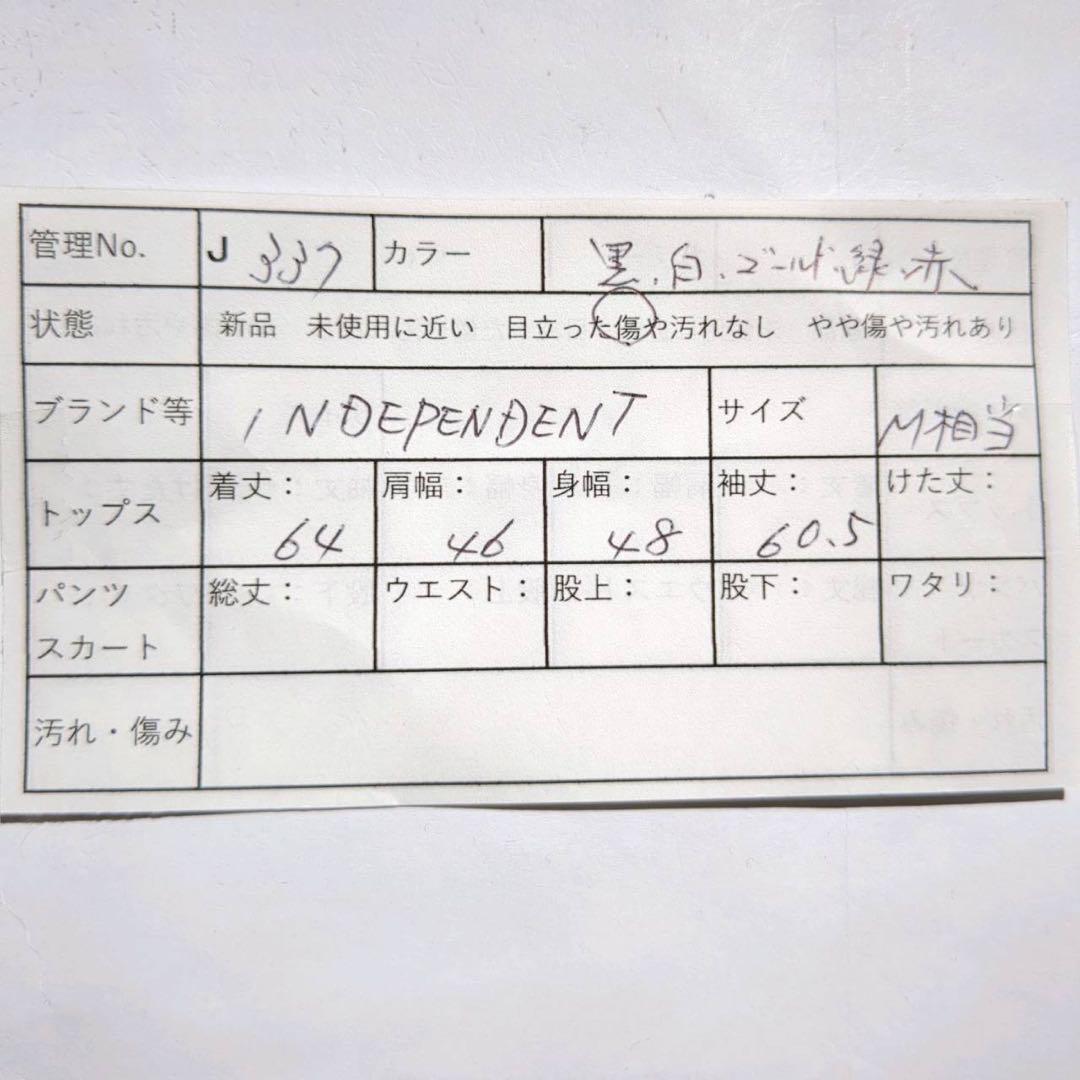 管理No. J 337 カラー 黒、白、ゴールド、緑、赤
状態 新品 未使用に近い 目立った傷や汚れなし やや傷や汚れあり
ブランド等 INDEPENDENT サイズ M相当
トップス 着丈: 64 肩幅: 46 身幅: 48 袖丈: 60.5 けた丈:
パンツ 総丈: ウエスト: 股上: 股下: ワタリ:
スカート
汚れ・傷み